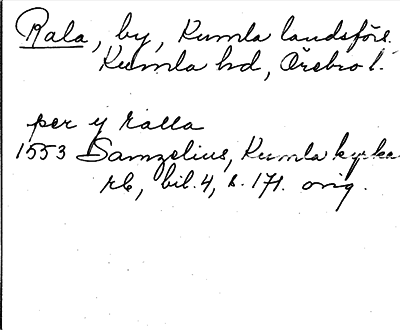 Rala, by, Kumla landsförs.
Kumla hd, Örebro l.
per y Ralla
1553 Samzelius, Kumla kyrka
rb, bil. 4, s. 171. orig.